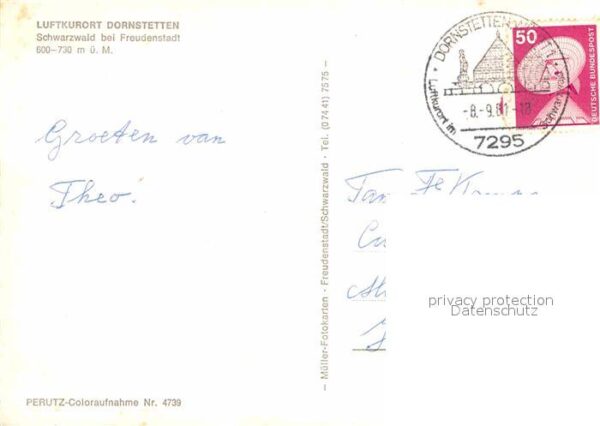 LUFTKURORT DORNSTETTEN
Schwarzwald bei Freudenstadt
600–730 m ü. M.
Groeten van
Theo.
PERUTZ-Coloraufnahme Nr. 4739
— Müller-Fotokarten · Freudenstadt/Schwarzwald · Tel. (07441) 7575 —
· DORNSTETTEN
Luftkurort im Schwarz
-8.-9.81-18
7295
50
DEUTSCHE BUNDESPOST
privacy protection
Datenschutz